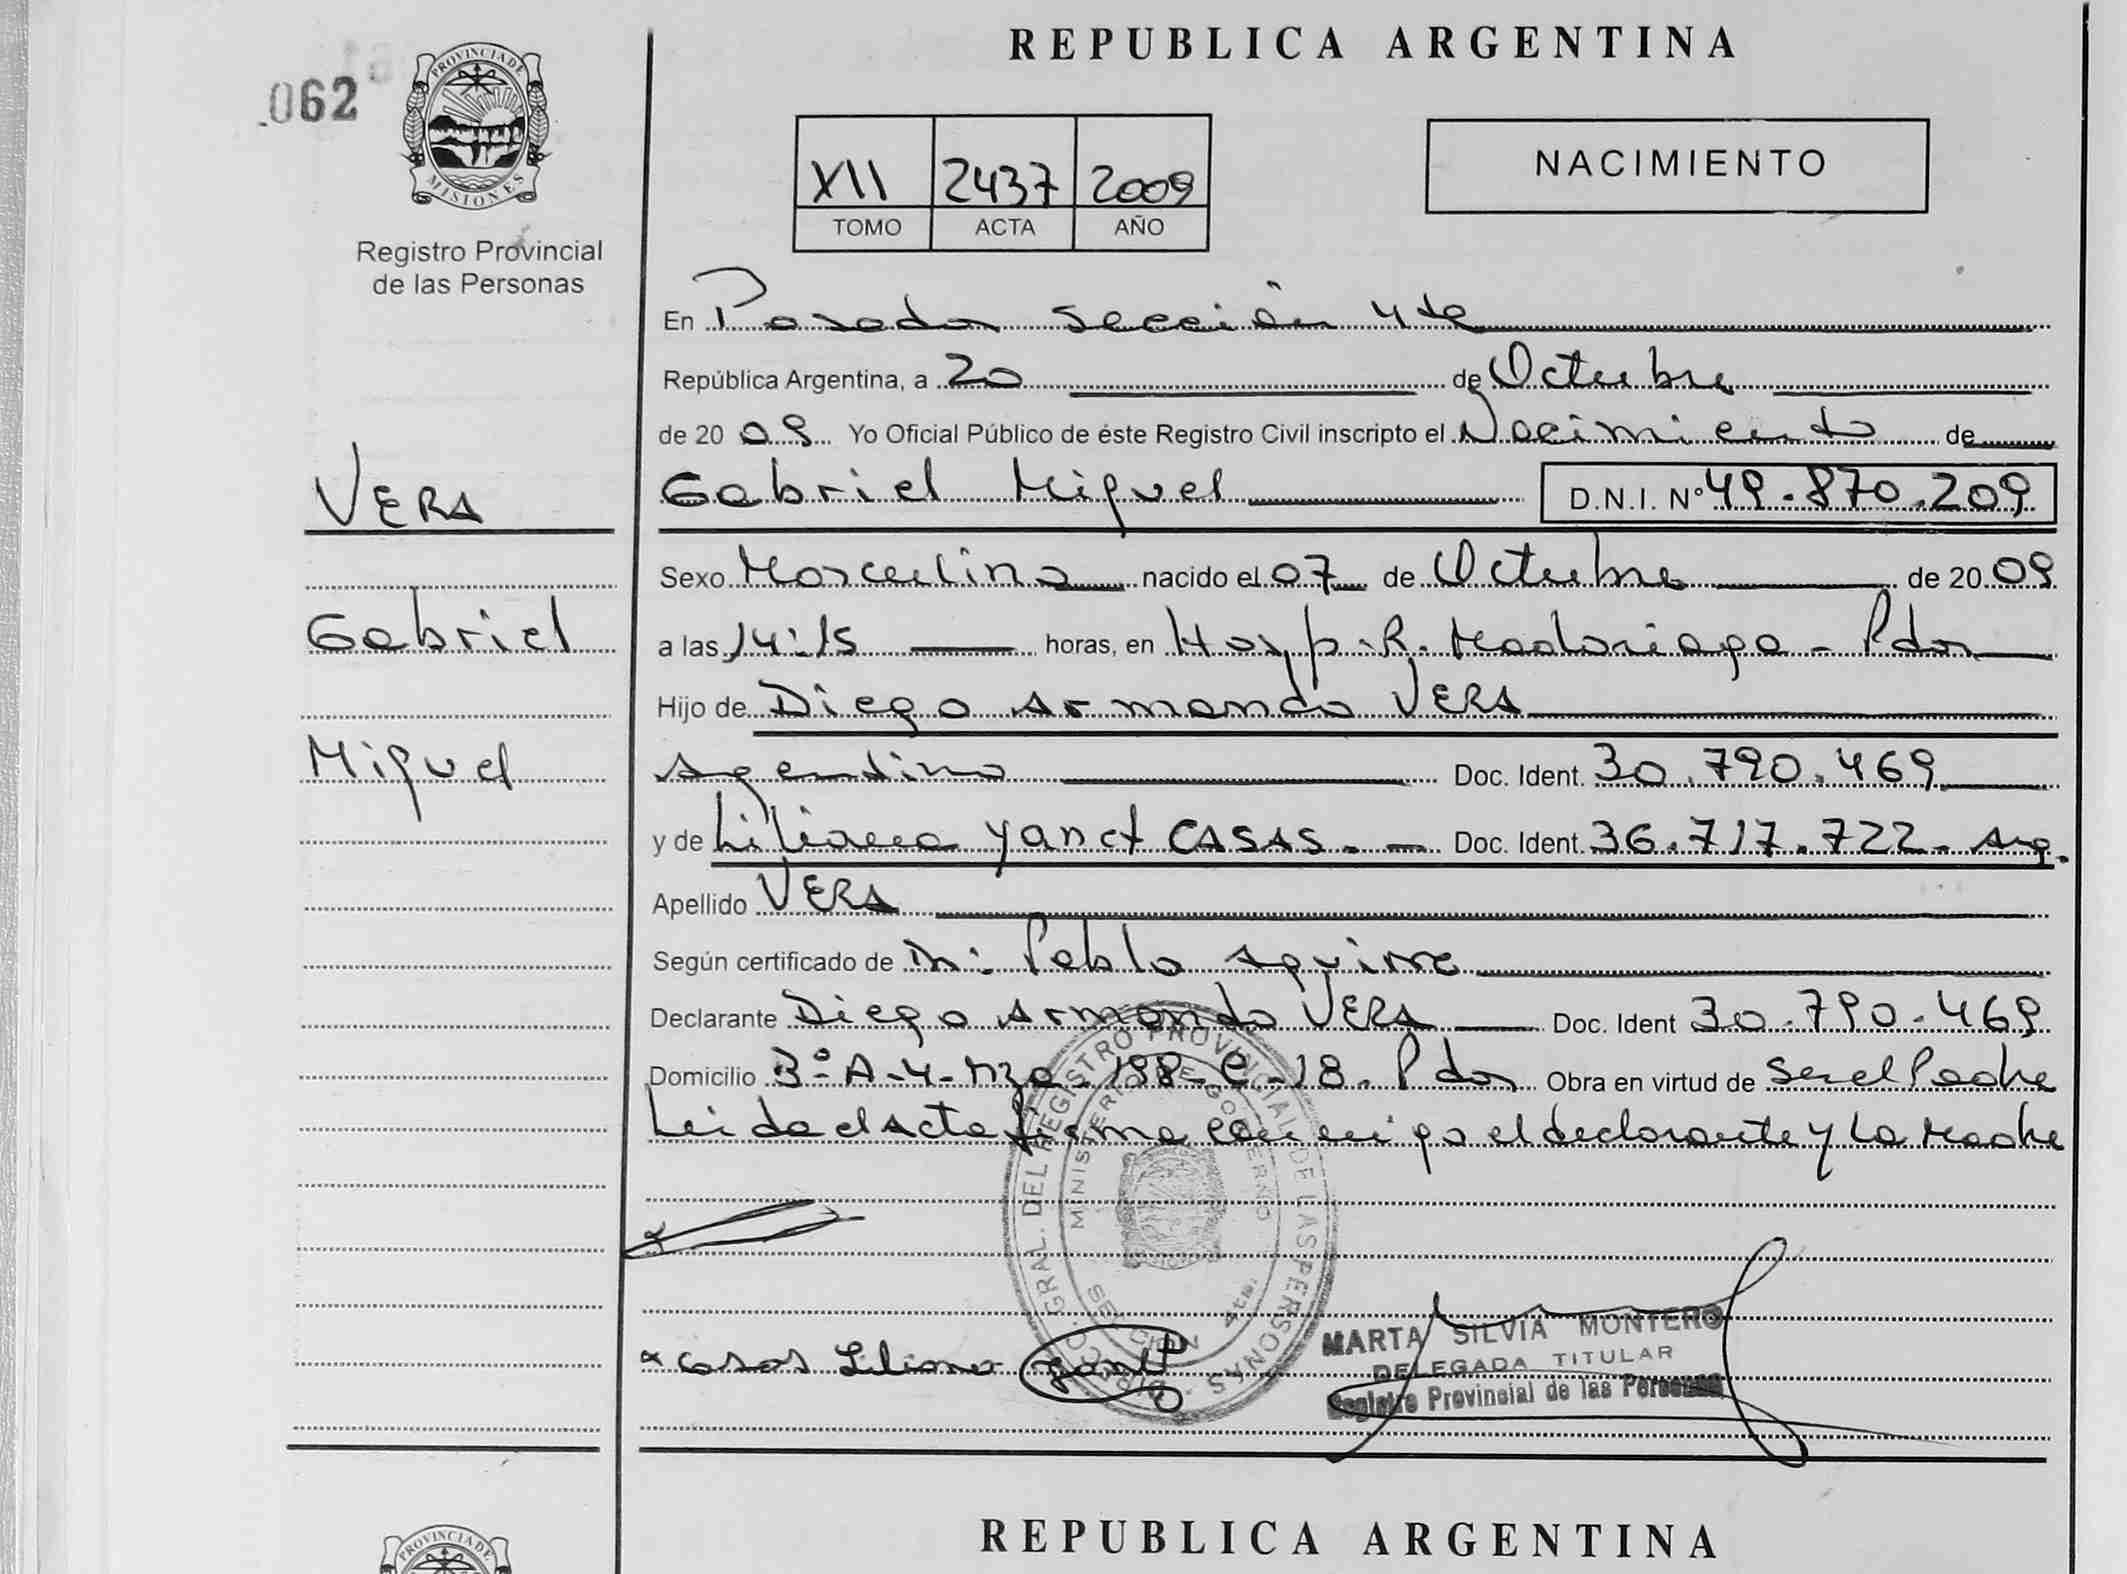 REPUBLICA ARGENTINA
062
PROVINCIA DE
MISIONES
Registro Provincial
de las Personas
XII 2437 2009
TOMO ACTA AÑO
NACIMIENTO
En Posadas sección 4ta
República Argentina, a 20 de Octubre
de 20 09 Yo Oficial Público de éste Registro Civil inscripto el Nacimiento de
VERA
Gabriel
Miguel
Gabriel Miguel D.N.I. Nº 49.870.209
Sexo Masculino nacido el 07 de Octubre de 20 09
a las 14:15 horas, en Hosp. R. Madariaga - Pdas
Hijo de Diego Armando VERA
Argentino Doc. Ident. 30.790.469
y de Liliana Yanet CASAS. - Doc. Ident. 36.717.722 - Arg.
Apellido VERA
Según certificado de Pablo Aguirre
Declarante Diego Armando VERA Doc. Ident 30.790.469
Domicilio 3º A-4-Mza-198-C-18. Pdas Obra en virtud de Ser el Padre
Leida el Acta firma conmigo el declarante y La Madre
DIRECC. GRAL. DEL REGISTRO PROVINCIAL DE LAS PERSONAS
MINISTERIO DE GOBIERNO
SECCION 4ta.
x Casas Liliana Yanet
MARTA SILVIA MONTERO
DELEGADA TITULAR
Registro Provincial de las Personas
REPUBLICA ARGENTINA
PROVINCIA DE